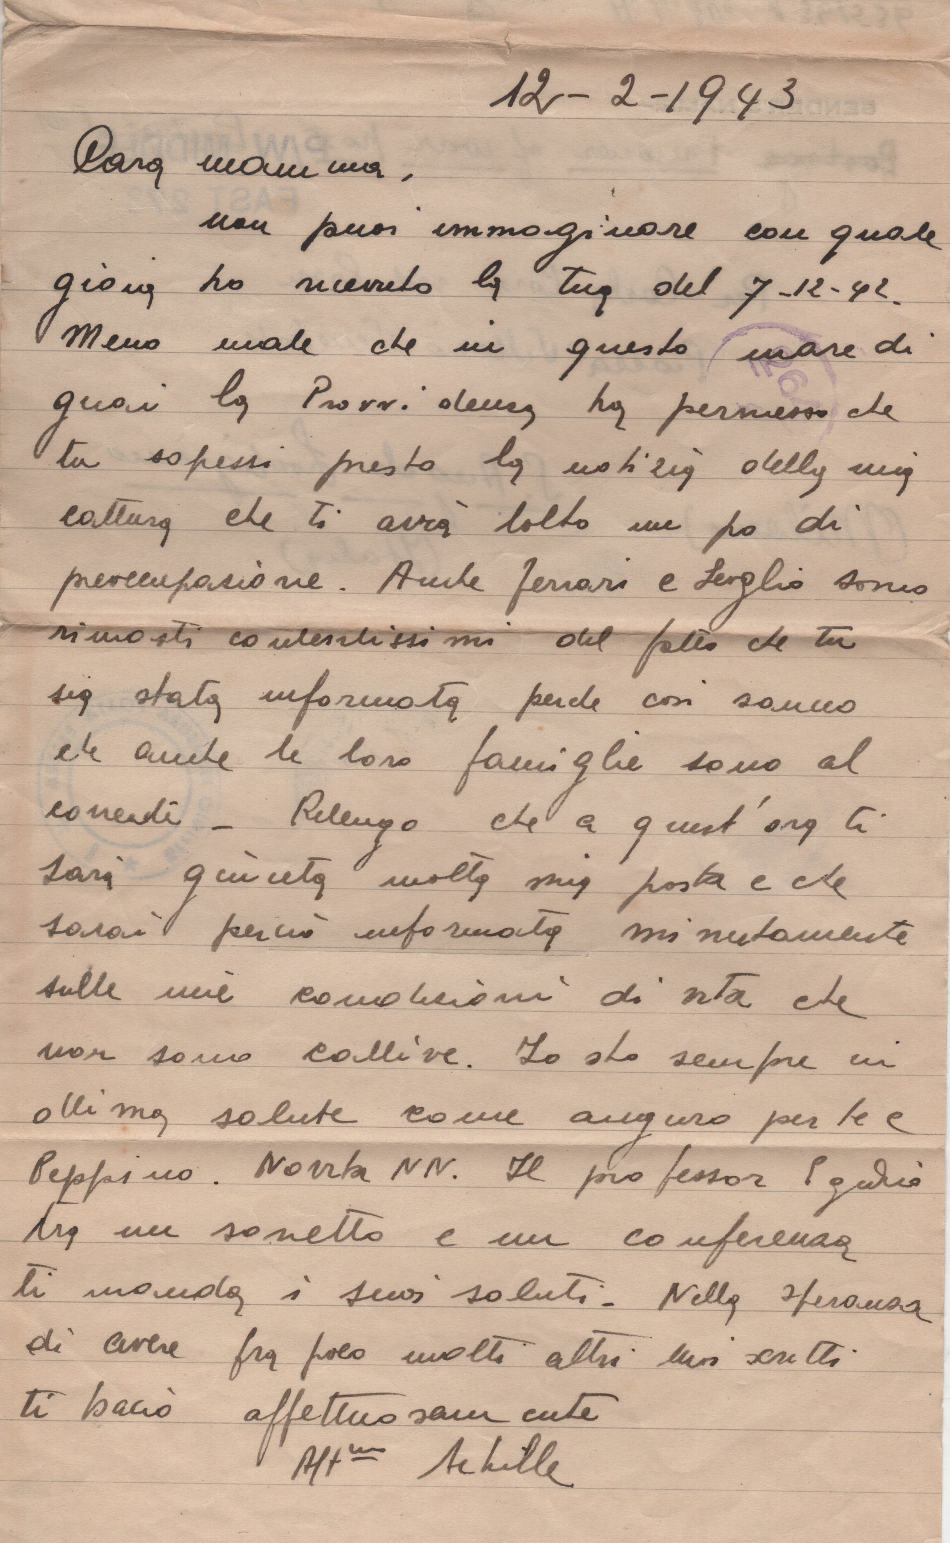 12-2-1943
Cara mamma,
non puoi immaginare con quale
gioia ho ricevuto la tua del 7-12-42.
Meno male che in questo mare di
guai la Provvidenza ha permesso che
tu sapessi presto la notizia della mia
cattura che ti avrà tolto un po di
preoccupazione. Anche Ferrari e sono
rimasti contentissimi del fatto che tu
sia stata informata perche così sanno
che anche le loro famiglie sono al
corrente - Ritengo che a quest'ora ti
sarà giunta molta mia posta e che
sarai perciò informata minutamente
sulle mie condizioni di vita che
non sono cattive. Io sto sempre in
ottima salute come auguro per te e
Peppino. Novità NN. Il professor
tra un sonetto e un conferenza
ti manda i suoi saluti - Nella speranza
di avere fra poco molti altri tuoi scritti
ti bacio affettuosamente
Aff.mo Achille
SENDER'S
P/W MIDDLE
EAST 272